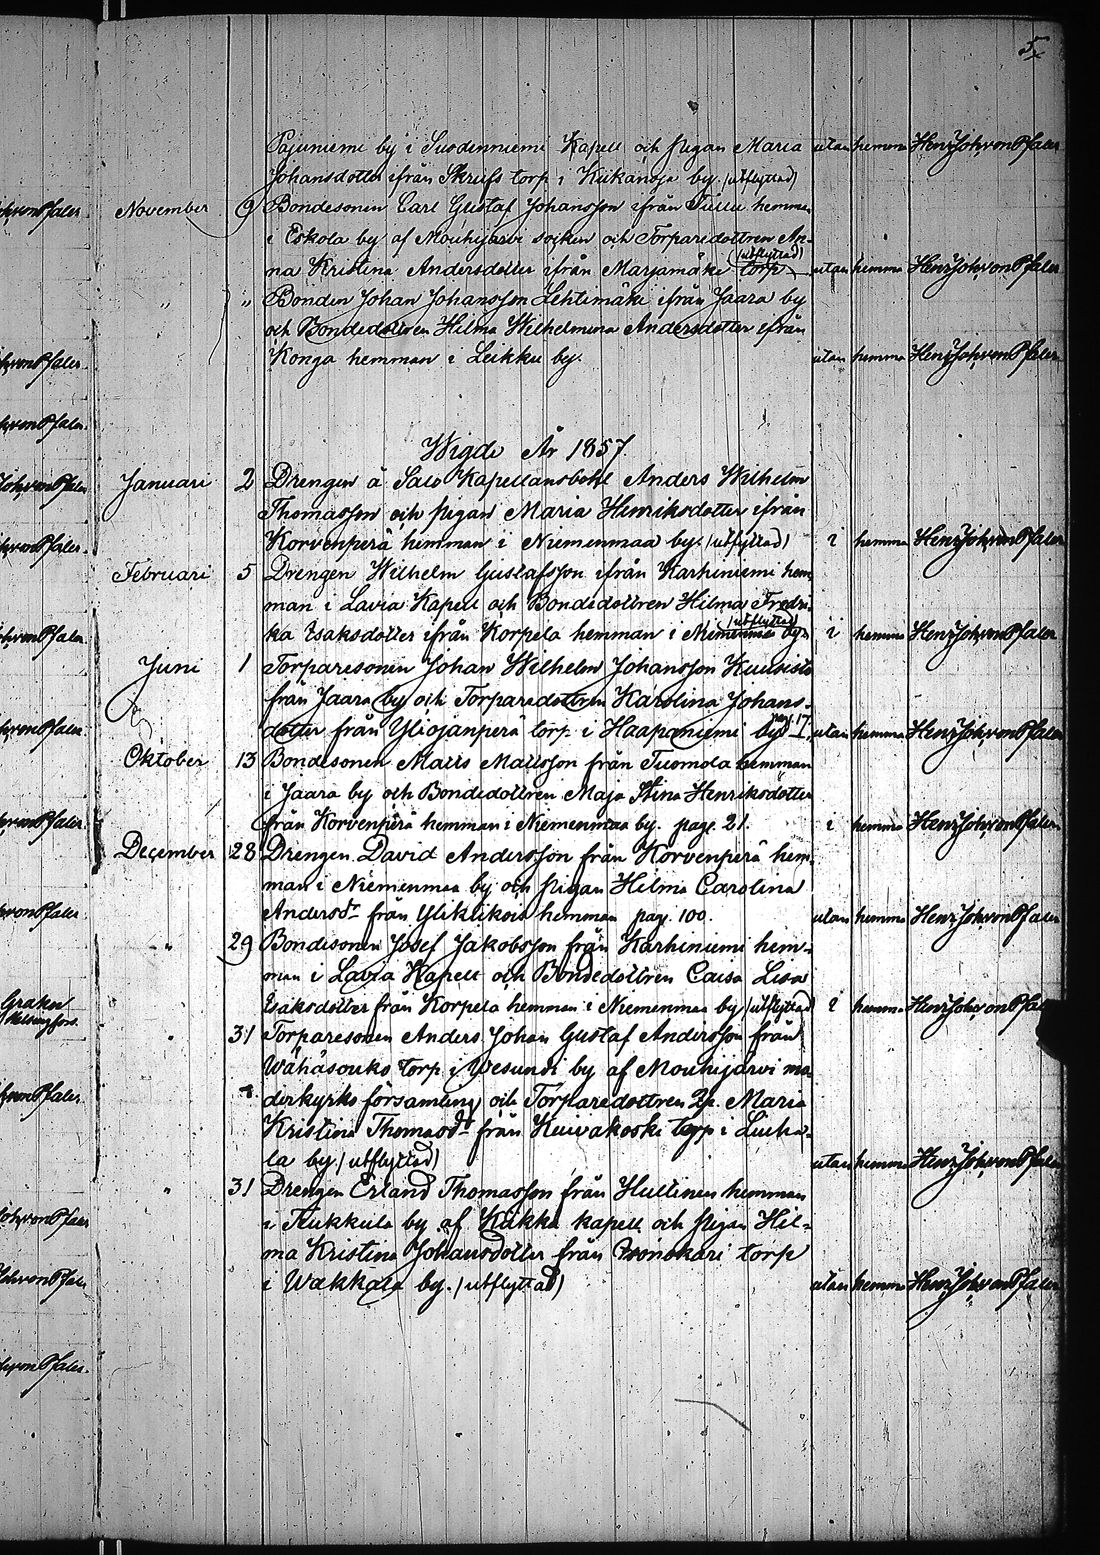 5
Pajuniemi by i Suodenniemi Kapell och pigan Maria utan hemma Henr Joh, von Pfaler
Johansdotter ifrån Skrufs torp i Kiikanoja by. (utflyttad)
November 9 Bondesonen Carl Gustaf Johansson ifrån hemman
i Eskola by af Mouhijärvi socken och Torparedottren An-
na Kristina Andersdotter ifrån Marjamäki torp (utflyttad) utan hemma Henr Joh, von Pfaler
" " Bonden Johan Johansson Lehtimäki ifrån Jaara by
och Bondedottren Hilma Wilhelmina Andersdotter ifrån
Konga hemman i Leikku by. utan hemma Henr Joh, von Pfaler
Wigde År 1857.
Januari 2 Drengen å Salo Kapellansbohl Anders Wilhelm
Thomasson och pigan Maria Henriksdotter ifrån
Korvenperä hemman i Niemenmaa by. (utflyttad) i hemma Henr Joh, von Pfaler
Februari 5 Drengen Wilhelm Gustafsson ifrån Karhiniemi hem
man i Lavia Kapell och Bondedottren Hilma Fredri-
ka Isaksdotter ifrån Korpela hemman i Niemenmaa by. (utflyttad) i hemma Henr Joh, von Pfaler
Juni 1 Torparesonen Johan Wilhelm Johansson Kuusisto
från Jaara by och Torparedottren Karolina Johans-
dotter från Yliojanperä torp i Haapaniemi by pag. 17. utan hemma Henr Joh, von Pfaler
Oktober 13 Bondesonen Matts Mattsson från Tuomola hemman
i Jaara by och Bondedottren Maja Stina Henriksdotter
från Korvenperä hemman i Niemenmaa by. pag. 21. i hemma Henr Joh, von Pfaler
December 28 Drengen David Andersson från Korvenperä hem-
man i Niemenmaa by och pigan Hilma Carolina
Andersdr från Yliklikoin hemman pag. 100. utan hemma Henr Joh, von Pfaler
" 29 Bondesonen Josef Jakobsson från Karhiniemi hem-
man i Lavia Kapell och Bondedottren Caisa Lisa
Isaksdotter från Korpela hemman i Niemenmaa by (utflyttad) i hemma Henr Joh, von Pfaler
" 31 Torparesonen Anders Johan Gustaf Andersson från
Wähäsouks torp i Wesunti by af Mouhijärvi mo
derkyrks församling och Torparedottren Maria
Kristina Thomasdr från Kuivakoski torp i Liuha-
la by. (utflyttad) utan hemma Henr Joh, von Pfaler
" 31 Drengen Erland Thomasson från Huttinen hemman
i Kukkula by af Kiikka kapell och pigan Hil-
ma Kristina Johansdotter från Isonokari torp
i Wakkala by. (utflyttad) utan hemma Henr Joh, von Pfaler